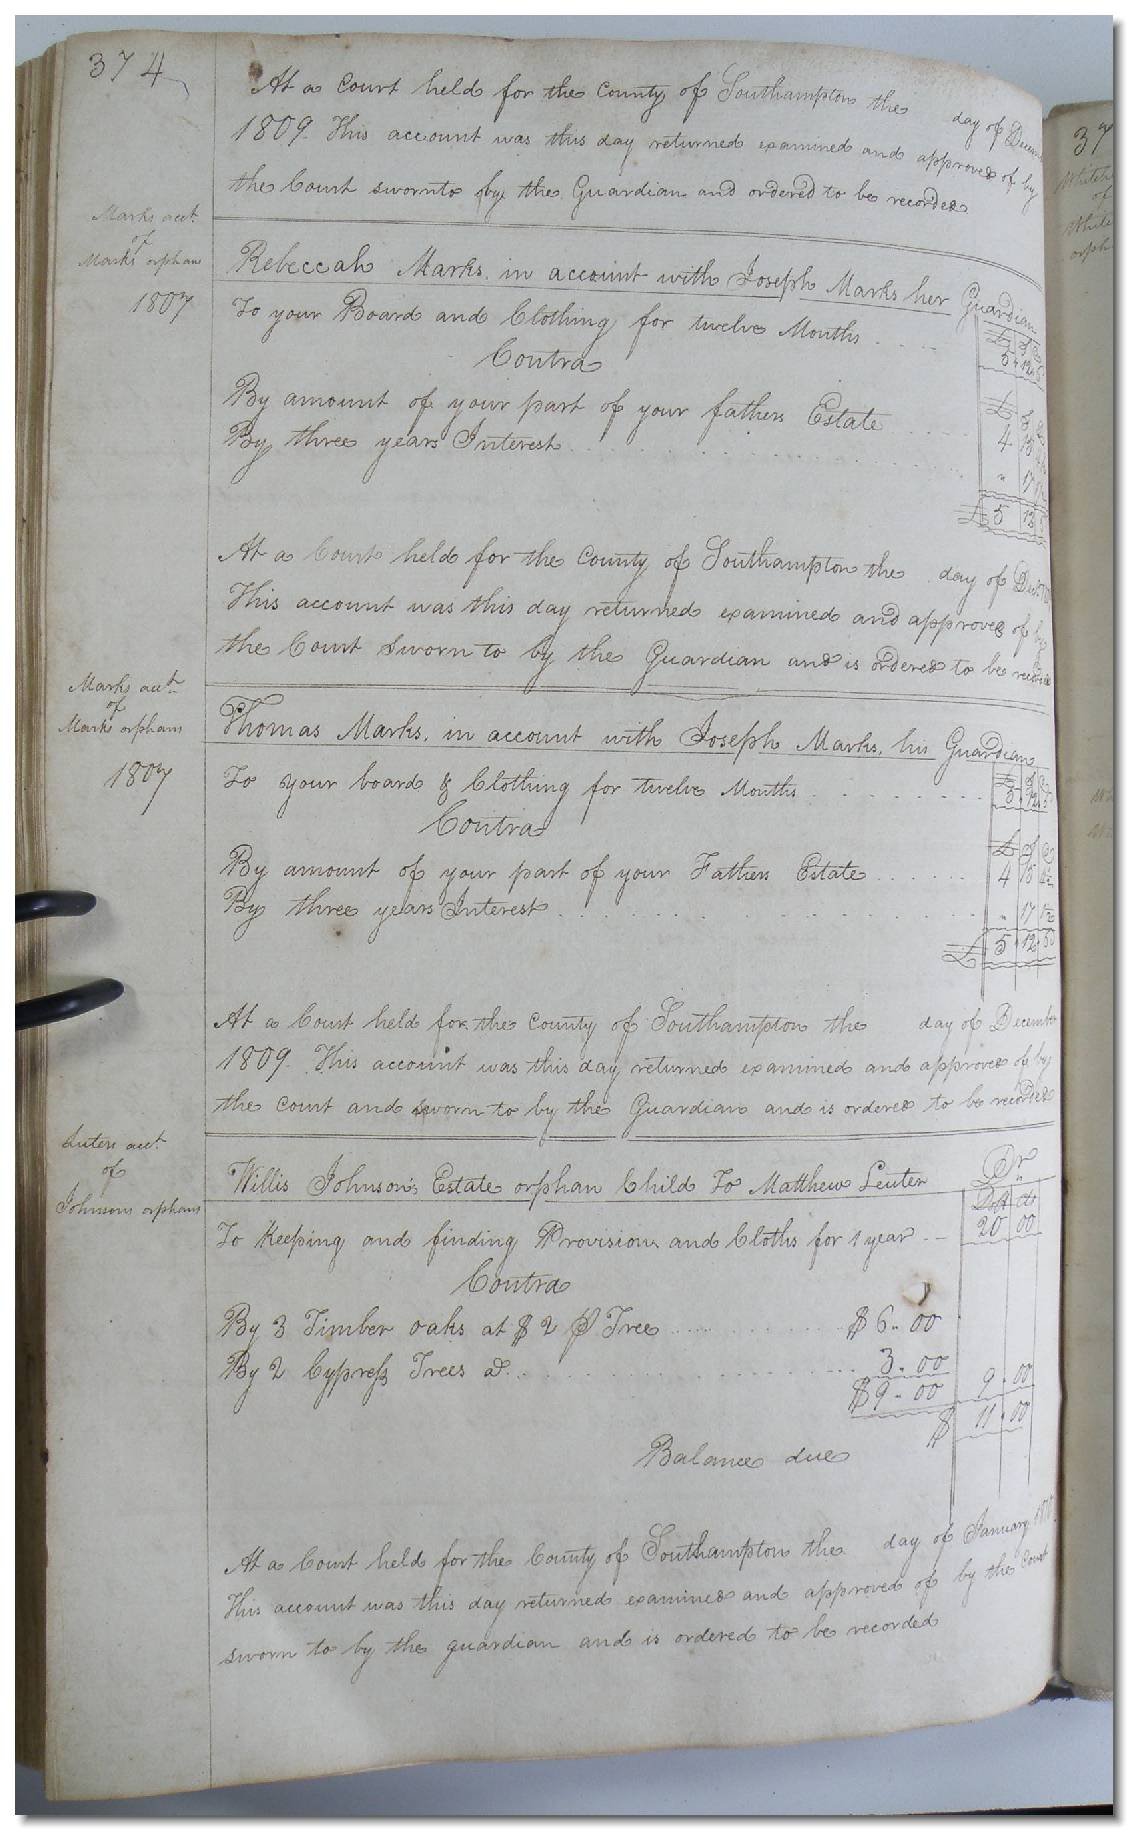 374
At a Court held for the County of Southampton the day of
1809. This account was this day returned examined and approved of by
the Court sworn to by the Guardian and ordered to be recorded
Marks acct.
of
Marks orphans
1807
Rebeccah Marks, in account with Joseph Marks her Guardian
To your Board and Clothing for twelve Months
Contra
By amount of your part of your fathers Estate
By three years Interest
£ 5
At a Court held for the County of Southampton the day of
This account was this day returned examined and approved of by
the Court sworn to by the Guardian and is ordered to be
Marks acct.
of
Marks orphans
1807
Thomas Marks, in account with Joseph Marks, his Guardian
To your board & Clothing for twelve Months
Contra
By amount of your part of your Fathers Estate 4 15
By three years Interest " 17
£ 5 12
At a Court held for the County of Southampton the day of December
1809. This account was this day returned examined and approved of by
the court and sworn to by the Guardian and is ordered to be recorded
acct.
of
Johnsons orphans
Willis Johnson's Estate orphan Child To Matthew Dr.
Doll cts
To Keeping and finding Provisions and Cloths for 1 year 20 00
Contra
By 3 Timber oaks at $2 ⅌ Tree $6.00
By 2 Cypress Trees do. 3.00
$9.00 9.00
$ 11.00
Balance due
At a Court held for the County of Southampton the day of January
This account was this day returned examined and approved of by the Court
sworn to by the guardian and is ordered to be recorded
37